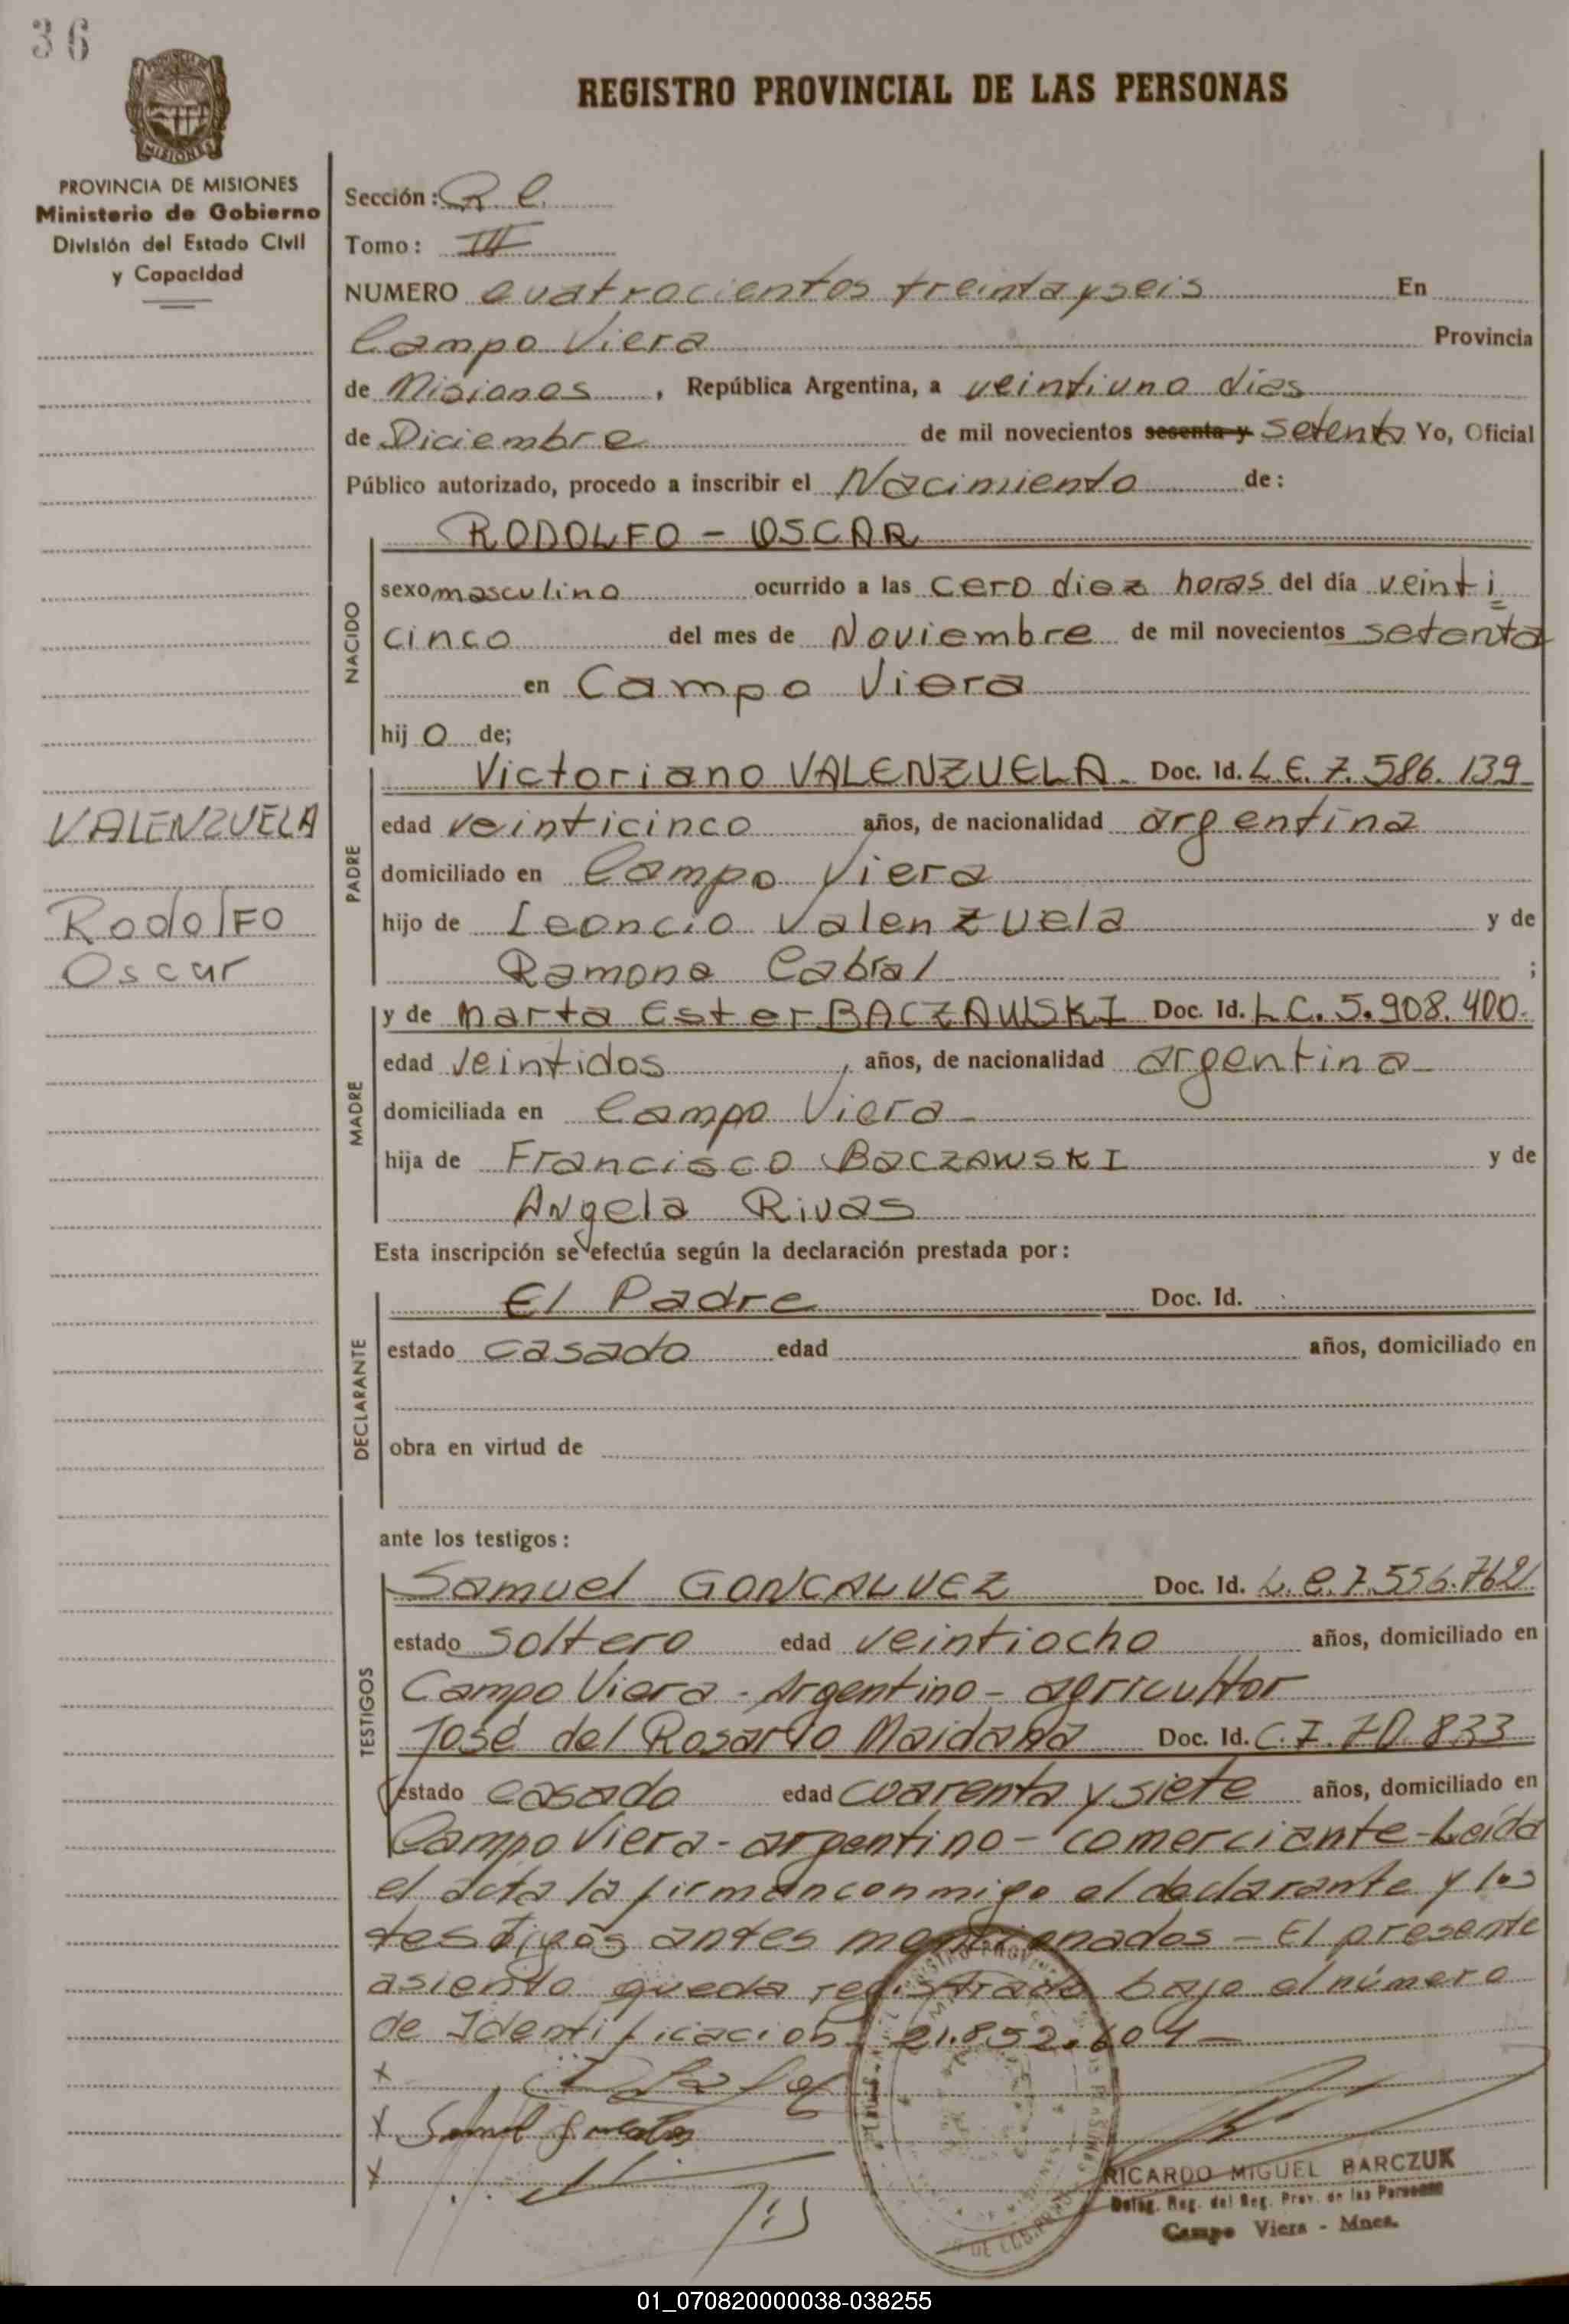 36
PROVINCIA DE MISIONES
Ministerio de Gobierno
División del Estado Civil
y Capacidad
REGISTRO PROVINCIAL DE LAS PERSONAS
Sección: R. C.
Tomo: III
NUMERO cuatrocientos treinta y seis En
Campo Viera Provincia
de Misiones, República Argentina, a veintiuno dias
de Diciembre de mil novecientos sesenta y setenta Yo, Oficial
Público autorizado, procedo a inscribir el Nacimiento de:
RODOLFO - OSCAR
NACIDO
sexo masculino ocurrido a las cero diez horas del día veinti
cinco del mes de Noviembre de mil novecientos setenta
en Campo Viera
hij o de;
Victoriano VALENZUELA. Doc. Id. L.E. 7.586.139
VALENZUELA
Rodolfo
Oscar
PADRE
edad veinticinco años, de nacionalidad argentina
domiciliado en Campo Viera
hijo de Leoncio Valenzuela y de
Ramona Cabral ;
y de Marta Ester BACZAWSKI Doc. Id. L.C. 5.908.400.
MADRE
edad veintidos, años, de nacionalidad argentina
domiciliada en Campo Viera
hija de Francisco BACZAWSKI y de
Angela Rivas
Esta inscripción se efectúa según la declaración prestada por:
El Padre Doc. Id.
DECLARANTE
estado casado edad años, domiciliado en
obra en virtud de
ante los testigos:
Samuel GONCALVEZ Doc. Id. L.E. 7.556.762
TESTIGOS
estado soltero edad veintiocho años, domiciliado en
Campo Viera - Argentino - agricultor
José del Rosario Maidana Doc. Id. C.I. 70.833
estado casado edad cuarenta y siete años, domiciliado en
Campo Viera - argentino - comerciante - Leída
el acta la firman conmigo el declarante y los
testigos antes mencionados - El presente
asiento queda registrado bajo el número
de Identificación 21.852.604 -
RICARDO MIGUEL BARCZUK
Deleg. Reg. del Reg. Prov. de las Personas
Campo Viera - Mnes.
01_070820000038-038255